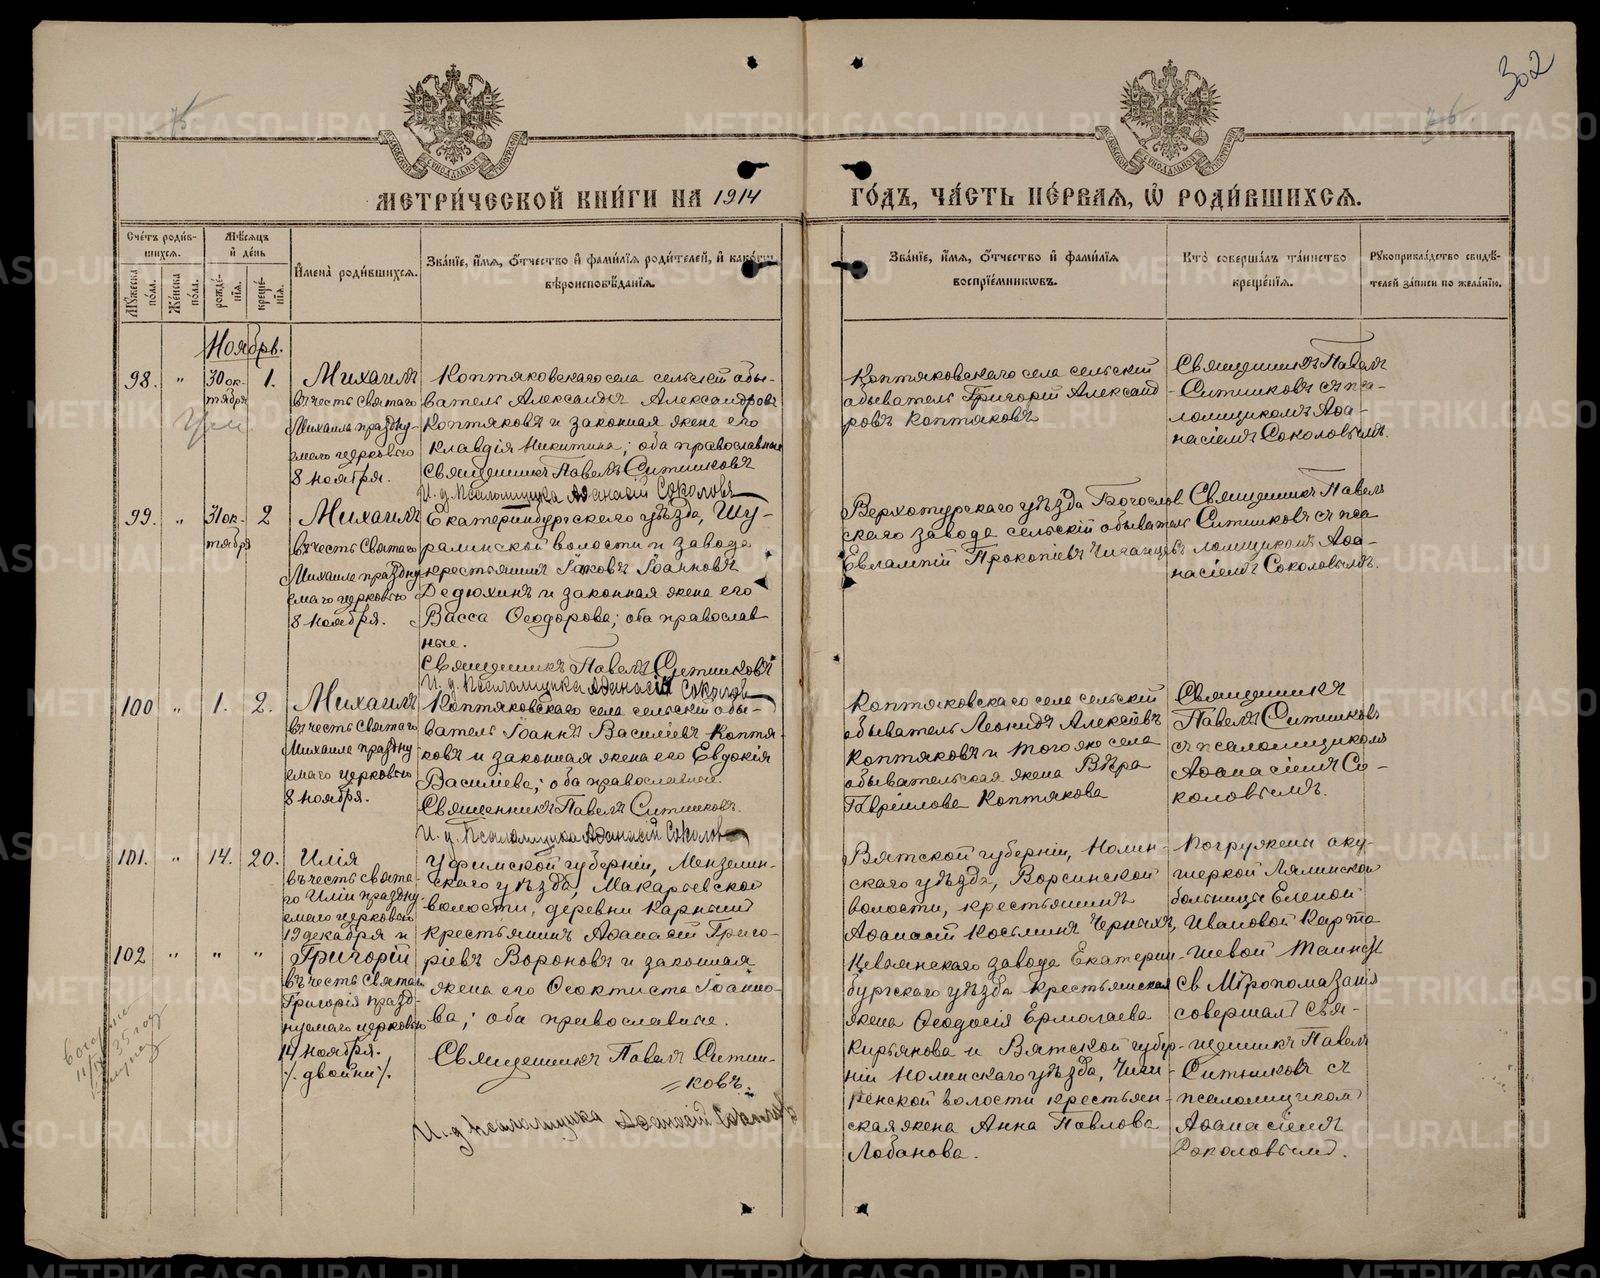 302
МЕТРИ́ЧЕСКОЙ КНИ́ГИ НА 1914
ГО́ДЪ, ЧА́СТЬ ПЕ́РВАЯ, Ѽ РОДИ́ВШИХСЯ.
Сче́тъ роди́в-
шихся.
Мѣ́сяцъ
и҆ де́нь
Мꙋ́жеска по́ла.
Же́нска по́ла.
рожде́-нїѧ.
креще́-нїѧ.
И҆мена̀ роди́вшихся.
Зва́нїе, и҆́мя, ѻ҆́тчество и҆ фами́лїя роди́телей, и҆ како́гѡ
вѣроисповѣ́данїя.
Зва́нїе, и҆́мя, ѻ҆́тчество и҆ фами́лїя
воспрїе́мникѡвъ.
Кто̀ соверша́лъ та́инство
креще́нїя.
Рꙋкоприкла́дство свидѣ́-
телей за́писи по жела́нїю.
Ноябрь.
98.
"
30 ок-
тября
1.
Михаилъ
въ честь Святаго
Михаила праздну-
емаго церковью
8 ноября.
Коптяковскаго села сельскій обы-
ватель Александръ Александровъ
Коптяковъ и законная жена его
Клавдія Никитина; оба православные
Священникъ Павелъ Ситниковъ
И. д. Псаломщика Аѳанасій Соколовъ
Коптяковскаго села сельскій
обыватель Григорій Александ
ровъ Коптяковъ
Священникъ Павелъ
Ситниковъ съ пса-
ломщикомъ Аѳа-
насіемъ Соколовымъ.
99.
"
31 ок-
тября
2
Михаилъ
въ честь Святаго
Михаила праздну
емаго церковью
8 ноября.
Екатеринбургскаго уѣзда, Шу-
ралинской волости и завода
крестьянинъ Іаковъ Іоанновъ
Дедюхинъ и законная жена его
Васса Ѳеодорова; оба православ
ные.
Священникъ Павелъ Ситниковъ
И. д. Псаломщика Аѳанасій Соколовъ
Верхотурскаго уѣзда Богослов
скаго завода сельскій обыватель
Евлампій Прокопіевъ
Священникъ Павелъ
Ситниковъ съ пса
ломщикомъ Аѳа-
насіемъ Соколовымъ.
100
"
1.
2.
Михаилъ
въ честь Святаго
Михаила праздну
емаго церковью
8 ноября.
Коптяковскаго села сельскій обы-
ватель Іоаннъ Василіевъ Коптя-
ковъ и законная жена его Евдокія
Василіева; оба православные.
Священникъ Павелъ Ситниковъ.
И. д. Псаломщика Аѳанасій Соколовъ
Коптяковскаго села сельскій
обыватель Леонидъ Алексѣевъ
Коптяковъ и того же села
обывательская жена Вѣра
Гавріилова Коптякова
Священникъ
Павелъ Ситниковъ
съ псаломщикомъ
Аѳанасіемъ Со-
коловымъ.
101.
"
14.
20.
Илія
въ честь свята-
го Иліи праздну-
емаго церковью
19 декабря и
Уфимской губерніи, Мензелин-
скаго уѣзда, Макарьевской
волости, деревни
крестьянинъ Аѳанасій Григо-
102
"
"
"
Григорій
въ честь Святаго
Григорія празд-
нуемаго церковью
14 ноября.
/. двойни /.
ріевъ Вороновъ и законная
жена его Ѳеоктиста Іоанно-
ва; оба православные.
Священникъ Павелъ Ситни-
ковъ.
И. д. псаломщика Аѳанасій Соколовъ
Вятской губерніи, Нолин-
скаго уѣзда, Ворсинской
волости, крестьянинъ
Аѳанасій Косьминъ Черныхъ,
Невьянскаго завода Екатерин-
бургскаго уѣзда крестьянская
жена Ѳеодосія Ермолаева
Кирьянова и Вятской губер-
ніи Нолинскаго уѣзда,
ренской волости крестьян-
ская жена Анна Павлова
Лобанова.
Погружены аку-
шеркой Лялинской
больницы Еленой
Ивановой Карта
шевой Таинст
св Мѵропомазанія
совершалъ Свя-
щенникъ Павелъ
Ситниковъ съ
псаломщикомъ
Аѳанасіемъ
Соколовымъ.
METRIKI.GASO-URAL.RU